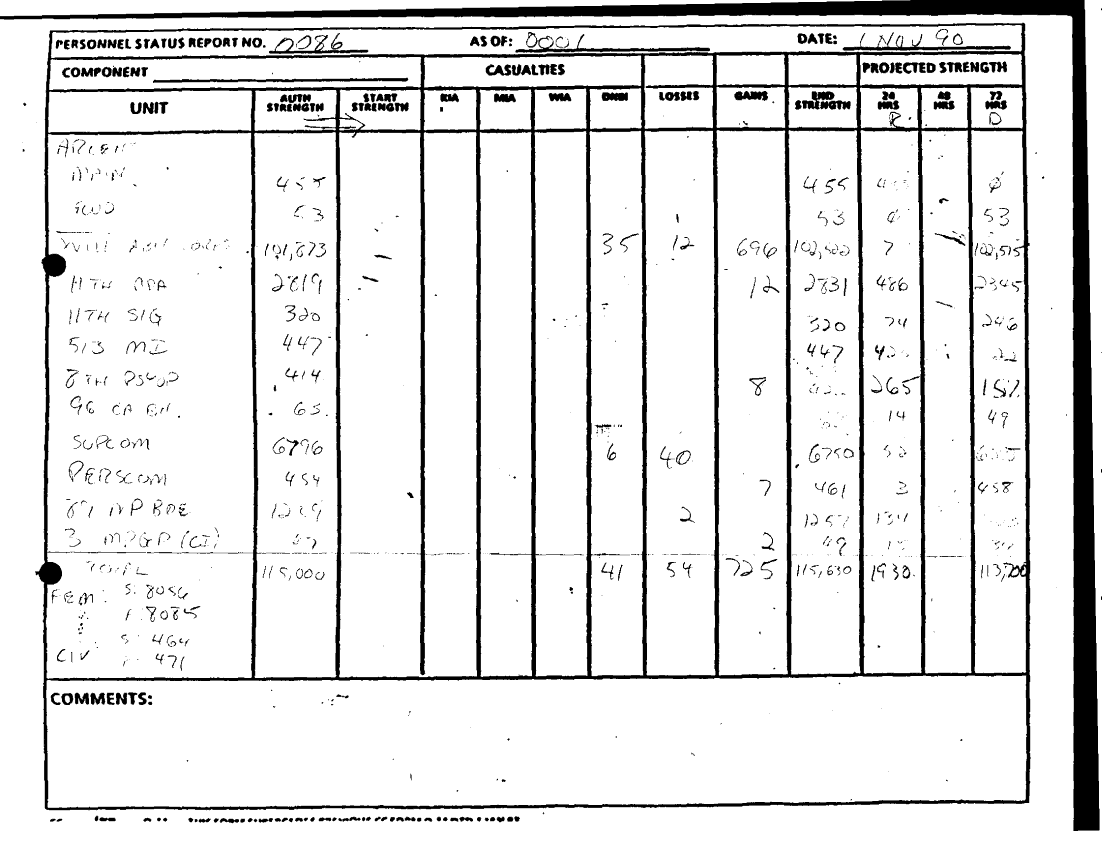 PERSONNEL STATUS REPORT NO. 0086 AS OF: 0001 DATE: 1 NOV 90
COMPONENT CASUALTIES PROJECTED STRENGTH
UNIT AUTH STRENGTH START STRENGTH KIA MIA WIA DNBI LOSSES GAINS END STRENGTH 24 HRS 48 HRS 72 HRS
R D
ARCENT
MAIN 455 455 ø
FWD 53 53 53
XVIII 101,873 35 12 696 102,522 7 102,515
11TH ADA 2819 12 2831 486 2345
11TH SIG 320 320 74 246
513 MI 447 447 22
8TH PSYOP 414 8 265 157
96 CA BN. 65. 14 49
SUPCOM 6796 6 40 6750
PERSCOM 454 7 461 3 458
89 MP BDE 2 1257 134
3 MPGP (CI) 47 2 49 15 34
TOTAL 115,000 41 54 725 115,630 1930 113,700
FEM: S: 8056
F: 8085
S: 464
CIV 471
COMMENTS: